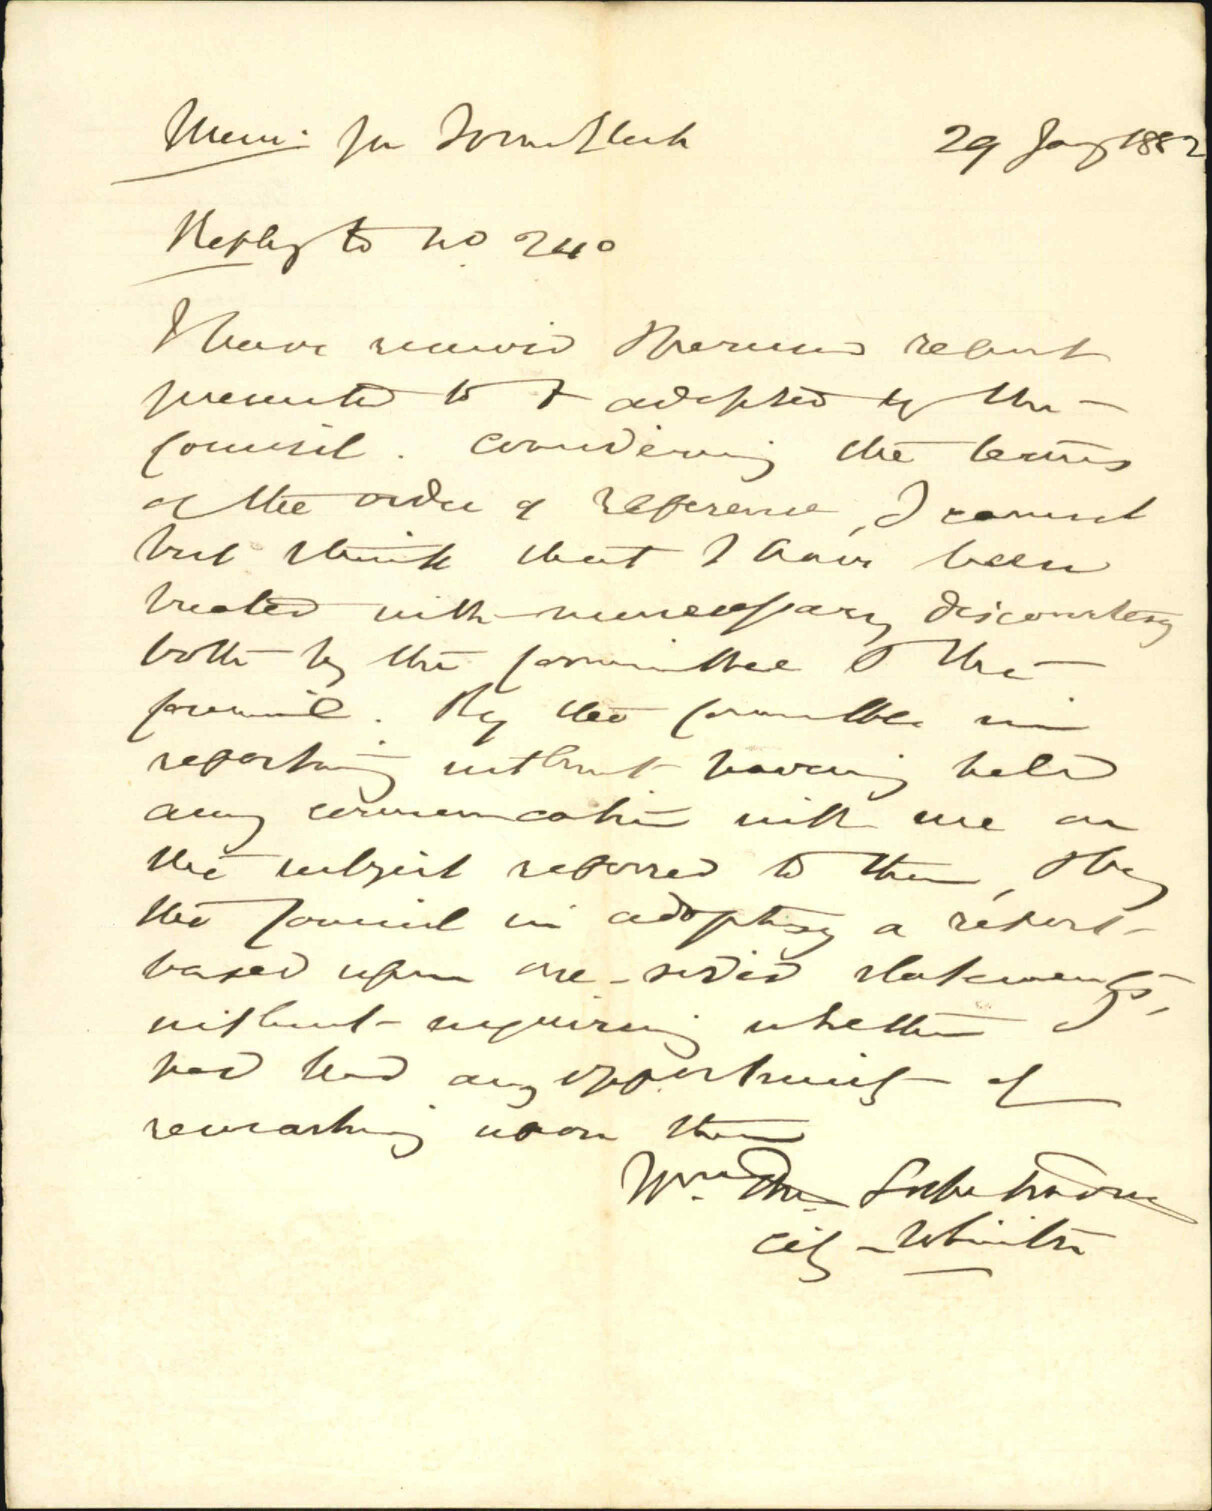 Mem: for Town Clerk 29 Jany 1882
Reply to No 240
I have received & perused report
presented to & adopted by the
Council. Considering the terms
of the order of reference, I cannot
but think that I have been
treated with unnecessary discourtesy
both by the Committee & the
Council. By the Committee in
reporting without having held
any communication with me on
the subject referred to them, & by
the Council in adopting a report
based upon one-sided statements,
without inquiring whether I
had had any opportunity of
remarking upon them
Wm Thos
City